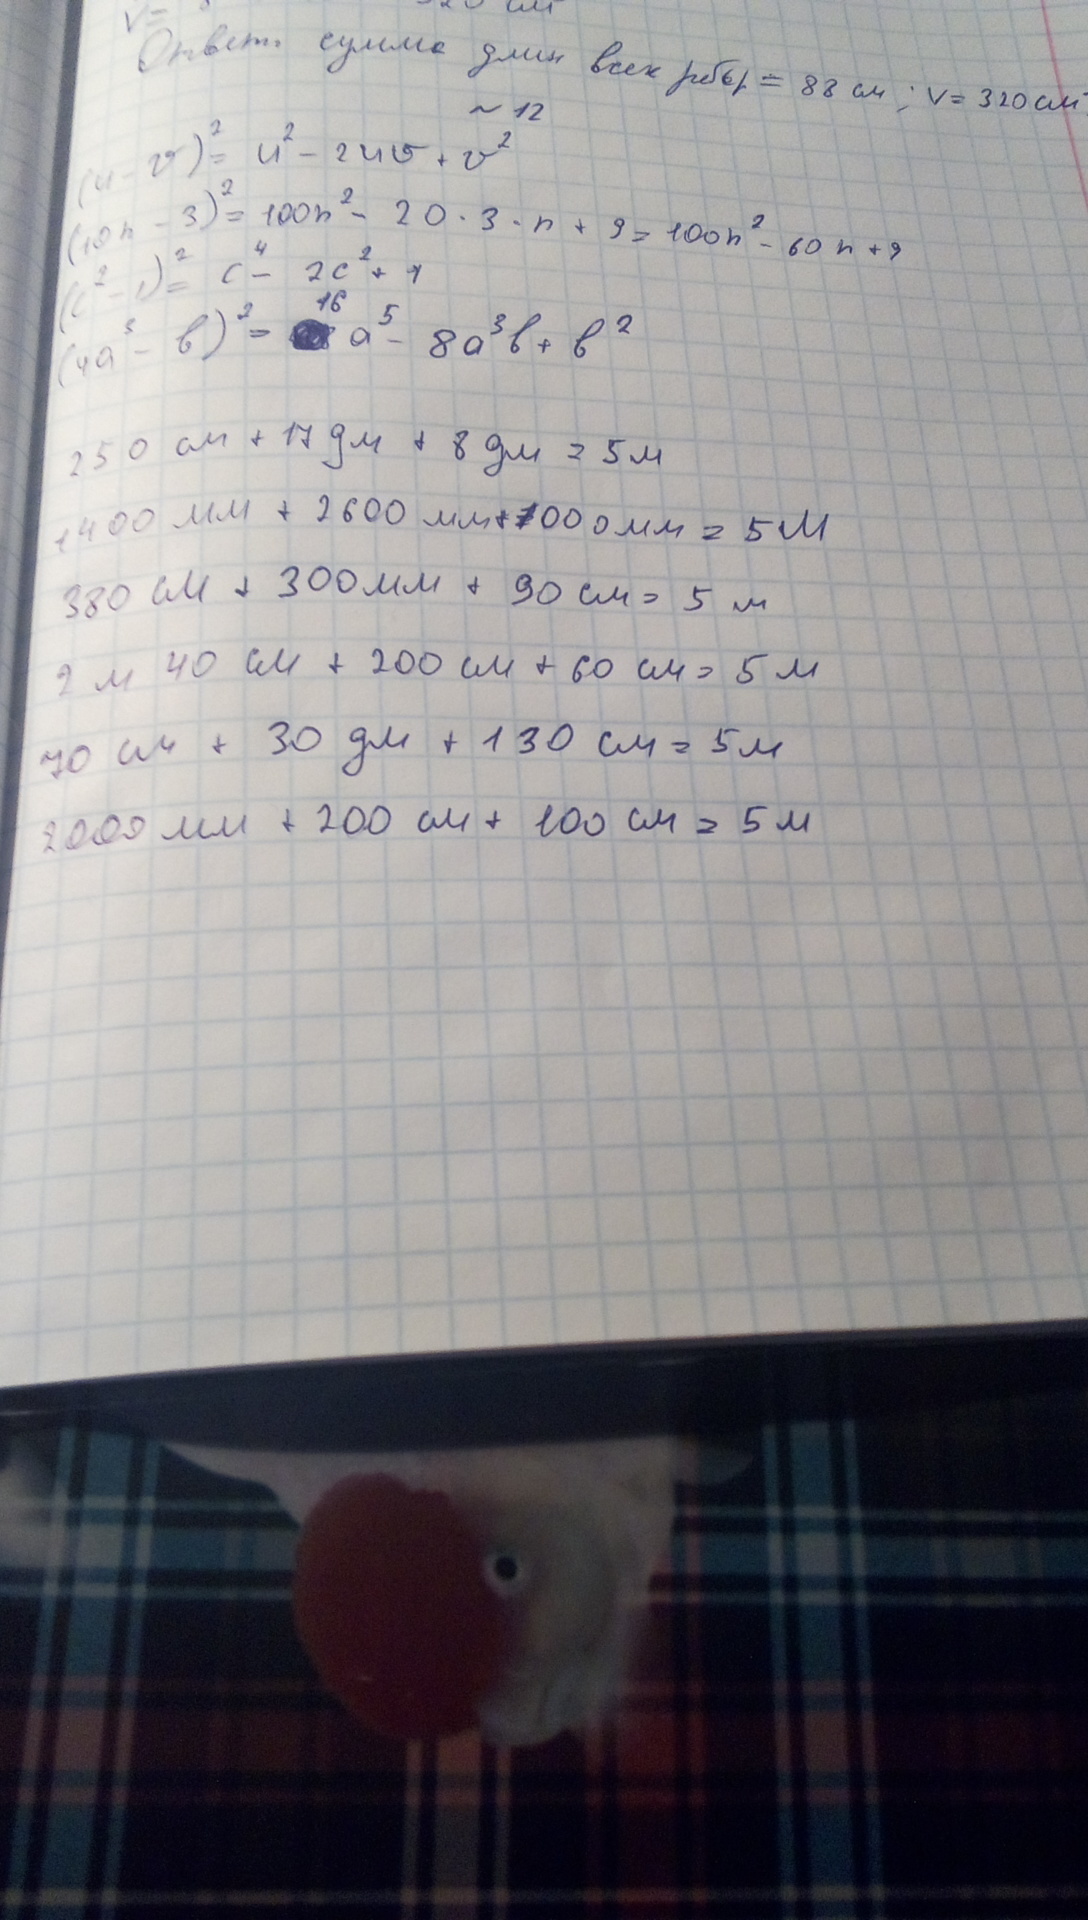 V= 320 см
Ответ: сумма длин всех рёбер = 88 см; V= 320 см
~ 12
(u - v)² = u² - 2uv + v²
(10n - 3)² = 100n² - 20 · 3 · n + 9 = 100n² - 60n + 9
(c² - 1)² = c⁴ - 2c² + 1
(4a³ - b)² = 16 a⁵ - 8a³b + b²
250 см + 17 дм + 8 дм = 5 м
1400 мм + 2600 мм + 1000 мм = 5 м
380 см + 300 мм + 90 см = 5 м
2 м 40 см + 200 см + 60 см = 5 м
70 см + 30 дм + 130 см = 5 м
2000 мм + 200 см + 100 см = 5 м